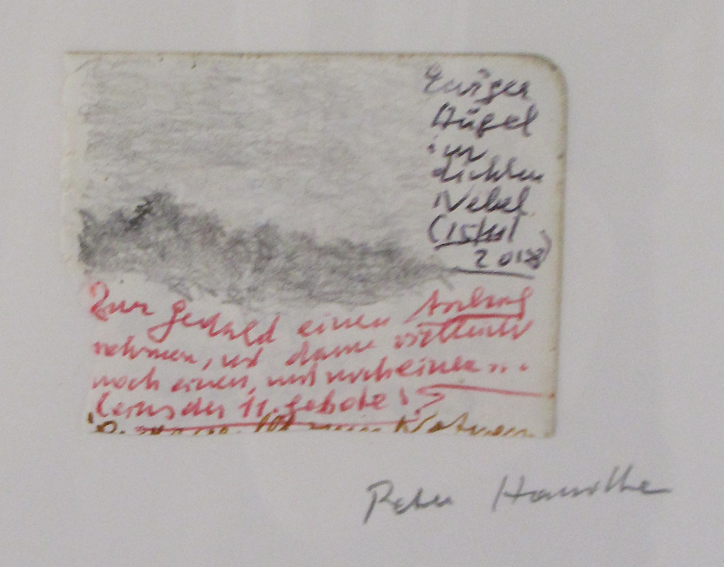 Ewiger
Hügel
im
dichten
Nebel
(15/11
2018)
Zur Geduld einen Anlauf
nehmen, und dann vielleicht
noch einen, und noch einen ...
(eins der 11. Gebote)
Peter Handke